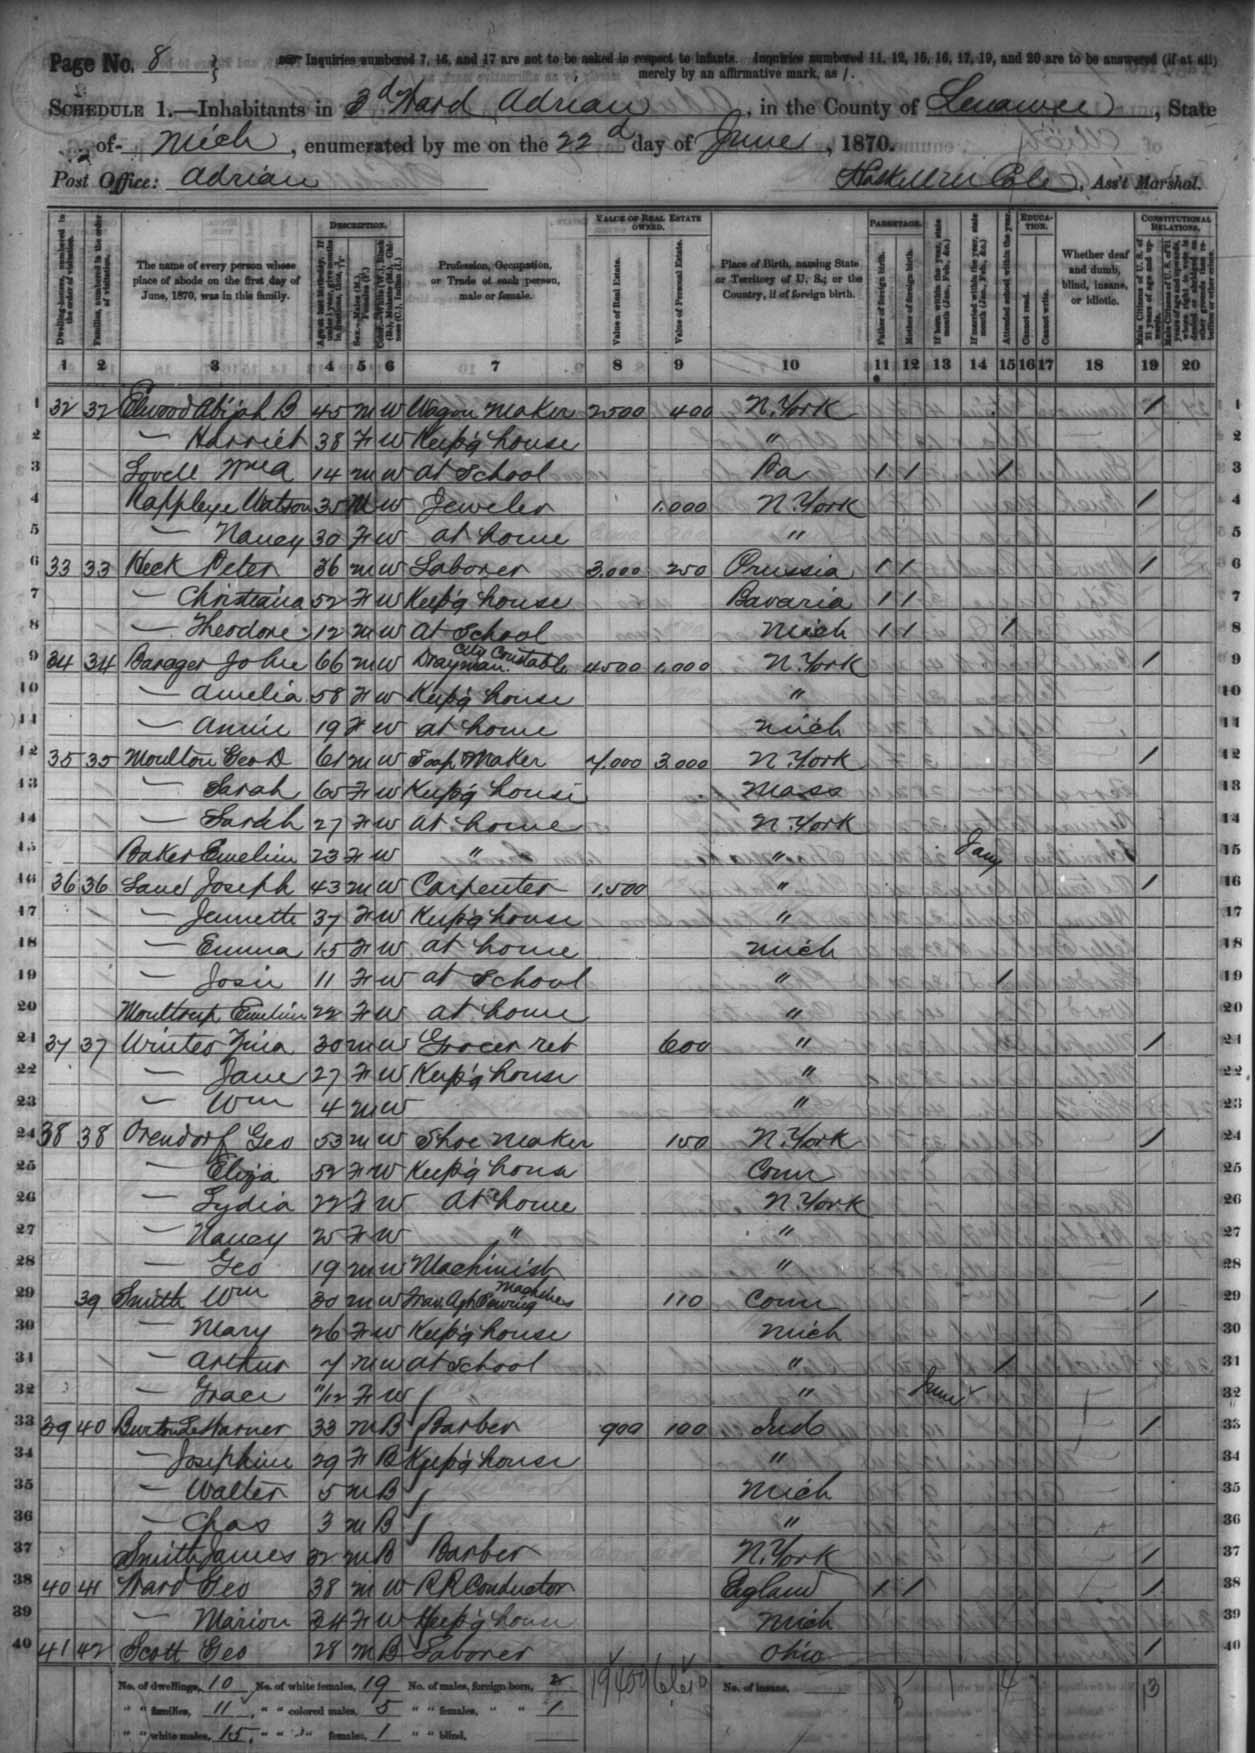 Page No. 8 } Inquiries numbered 7, 16, and 17 are not to be asked in respect to infants. Inquiries numbered 11, 12, 15, 16, 17, 19, and 20 are to be answered (if at all)
merely by an affirmative mark, as /.
SCHEDULE 1.—Inhabitants in 3d Ward Adrian, in the County of Lenawee, State
of Mich, enumerated by me on the 22d day of June, 1870.
Post Office: Adrian Ass't Marshal.
DESCRIPTION. VALUE OF REAL ESTATE OWNED. PARENTAGE. EDUCATION. CONSTITUTIONAL RELATIONS.
Dwelling-houses, numbered in the order of visitation. Families, numbered in the order of visitation. The name of every person whose place of abode on the first day of June, 1870, was in this family. Profession, Occupation, or Trade of each person, male or female. Value of Real Estate. Value of Personal Estate. Place of Birth, naming State or Territory of U. S.; or the Country, if of foreign birth. Father of foreign birth. Mother of foreign birth. If born within the year, state month (Jan., Feb., &c.) If married within the year, state month (Jan., Feb., &c.) Attended school within the year. Cannot read. Cannot write. Whether deaf and dumb, blind, insane, or idiotic.
1 2 3 4 5 6 7 8 9 10 11 12 13 14 15 16 17 18 19 20
1 32 32 Elwood Abijah B 45 M W Wagon Maker 2500 400 N. York / 1
2 — Harriet 38 F W Keep'g house " 2
3 Lovell Wm A 14 M W At School Pa / / / 3
4 Rappleye Watson 35 M W Jeweler 1,000 N. York / 4
5 — Nancy 30 F W at home " 5
6 33 33 Heck Peter 36 M W Laborer 3,000 250 Prussia / / / 6
7 — Christiana 52 F W Keep'g house Bavaria / / 7
8 — Theodore 12 M W At School Mich / / / 8
9 34 34 Barager John 66 M W Drayman City Constable 4500 1,000 N. York / 9
10 — Amelia 58 F W Keep'g house " 10
11 — Annie 19 F W at home Mich 11
12 35 35 Moulton Geo D 61 M W Soap Maker 7,000 3,000 N. York / 12
13 — Sarah 60 F W Keep'g house Mass 13
14 — Sarah 27 F W At home N. York 14
15 Baker Emeline 23 F W " " Jany 15
16 36 36 Joseph 43 M W Carpenter 1,500 " / 16
17 — Jennette 37 F W Keep'g house " 17
18 — Emma 15 F W at home Mich 18
19 — Josie 11 F W at School " / 19
20 Moulthrop Emeline 22 F W at home " 20
21 37 37 30 M W Grocer ret 600 " / 21
22 — Jane 27 F W Keep'g house " 22
23 — Wm 4 M W " 23
24 38 38 Orendorf Geo 53 M W Shoe Maker 150 N. York / 24
25 — Eliza 52 F W Keep'g house Conn 25
26 — Lydia 22 F W At home N. York 26
27 — Nancy 25 F W " " 27
28 — Geo 19 M W Machinist " 28
29 39 Smith Wm 30 M W Trav. Agt Sewing Machines 110 Conn / 29
30 — Mary 26 F W Keep'g house Mich 30
31 — Arthur 7 M W at School " / 31
32 — Grace 11/12 F W " June 32
33 39 40 33 M B Barber 900 100 Ind / 33
34 — Josephine 29 F B Keep'g house " 34
35 — Walter 5 M B Mich 35
36 — Chas 3 M B " 36
37 Smith James 32 M B Barber N. York / 37
38 40 41 Ward Geo 38 M W R R Conductor England / / / 38
39 — Marion 34 F W Keep'g house Mich 39
40 41 42 Scott Geo 28 M B Laborer Ohio / 40
No. of dwellings, 10 No. of white females, 19 No. of males, foreign born, 2 No. of insane,
" " families, 11 " " colored males, 5 " " females, " " 1
" " white males, 15 " " " females, 1 " " blind, 13